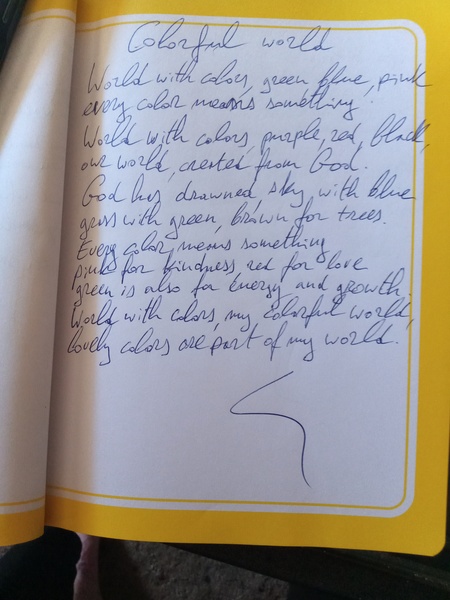 Colorful world
World with colors, green blue, pink
every color means something.
World with colors, purple, red, black,
our world, created from God.
God has drawned, sky, with blue
grass with green, brown for trees.
Every color, means something
pink for kindness, red for love
green is also for energy and growth.
World with colors, my colorful world,
lovely colors are part of my world.